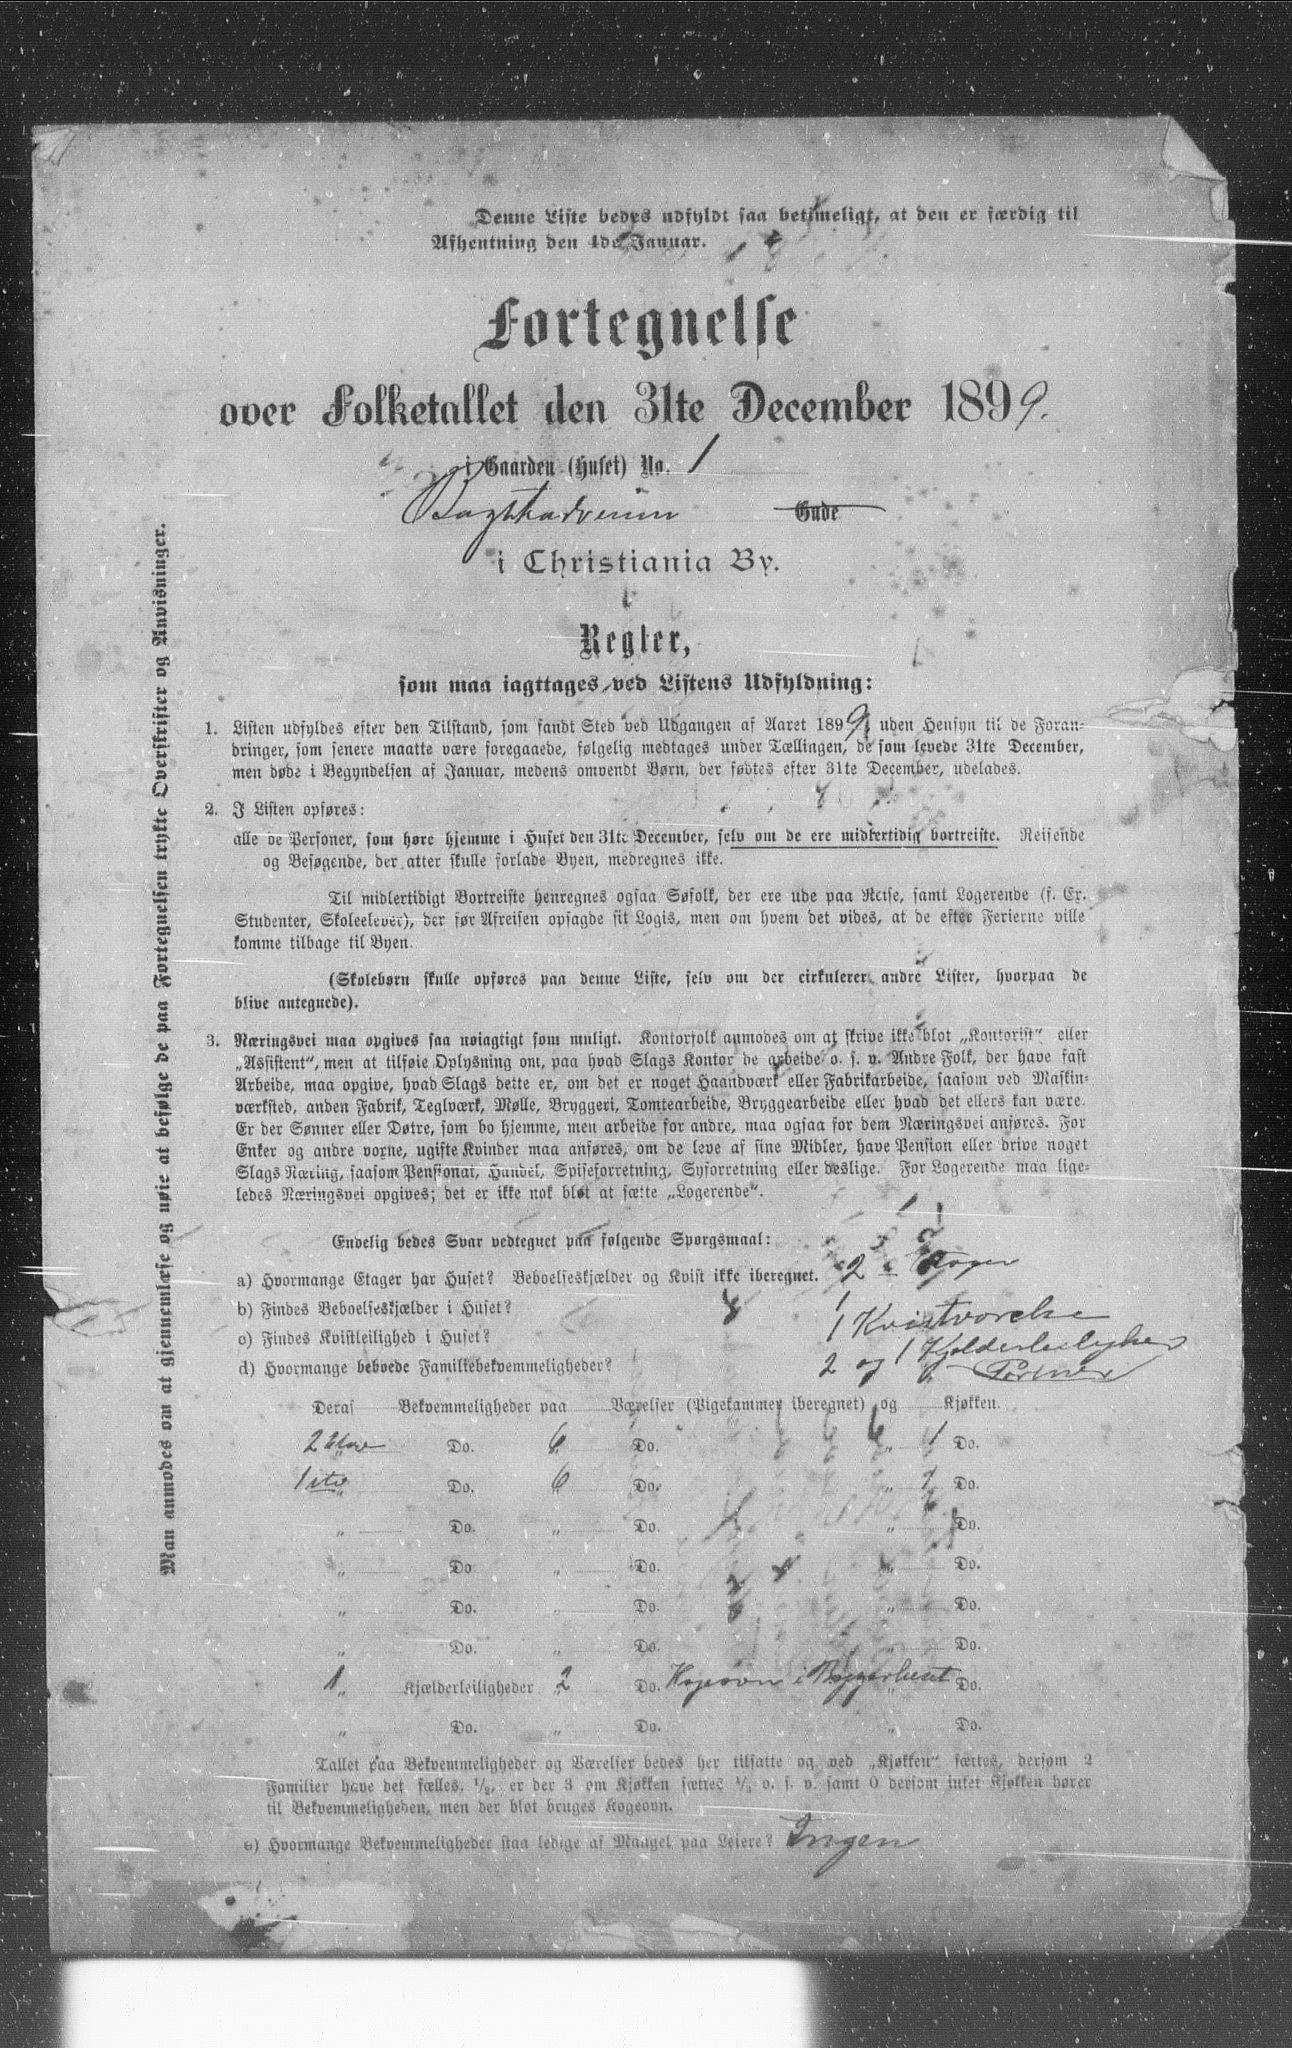 Denne Liste bedes udfyldt saa betimeligt, at den er færdig til
Afhentning den 4de Januar.
Fortegnelse
over Folketallet den 31te December 1899.
i Gaarden (Huset) No. 1
Gade
i Christiania By.
Regler,
som maa iagttages ved Listens Udfyldning:
1. Listen udfyldes efter den Tilstand, som fandt Sted ved Udgangen af Aaret 1899, uden Hensyn til de Foran-
dringer, som senere maatte være foregaaede, følgelig medtages under Tællingen, de som levede 31te December,
men døde i Begyndelsen af Januar, medens omvendt Børn, der fødtes efter 31te December, udelades.
2. I Listen opføres:
alle de Personer, som høre hjemme i Huset den 31te December, selv om de ere midlertidig bortreiste. Reisende
og Besøgende, der atter skulle forlade Byen, medregnes ikke.
Til midlertidigt Bortreiste henregnes ogsaa Søfolk, der ere ude paa Reise, samt Logerende (f. Ex.
Studenter, Skoleelever), der før Afreisen opsagde sit Logis, men om hvem det vides, at de efter Ferierne ville
komme tilbage til Byen.
(Skolebørn skulle opføres paa denne Liste, selv om der cirkulerer andre Lister, hvorpaa de
blive antegnede).
3. Næringsvei maa opgives saa nøiagtigt som muligt. Kontorfolk anmodes om at skrive ikke blot „Kontorist“ eller
„Assistent“, men at tilføie Oplysning om, paa hvad Slags Kontor de arbeide o. s. v. Andre Folk, der have fast
Arbeide, maa opgive, hvad Slags dette er, om det er noget Haandværk eller Fabrikarbeide, saasom ved Maskin-
værksted, anden Fabrik, Teglværk, Mølle, Bryggeri, Tomtearbeide, Bryggearbeide eller hvad det ellers kan være.
Er der Sønner eller Døtre, som bo hjemme, men arbeide for andre, maa ogsaa for dem Næringsvei anføres. For
Enker og andre voxne, ugifte Kvinder maa anføres, om de leve af sine Midler, have Pension eller drive noget
Slags Næring, saasom Pensionat, Handel, Spiseforretning, Syforretning eller deslige. For Logerende maa lige-
ledes Næringsvei opgives; det er ikke nok blot at sætte „Logerende“.
Endelig bedes Svar vedtegnet paa følgende Spørgsmaal:
a) Hvormange Etager har Huset? Beboelseskjælder og Kvist ikke iberegnet. 2 Etager
b) Findes Beboelseskjælder i Huset? 1
c) Findes Kvistleilighed i Huset? 1
d) Hvormange beboede Familiebekvemmeligheder? 2 og 1
Deraf Bekvemmeligheder paa Værelser (Pigekammer iberegnet) og Kjøkken.
2 Do. 6 Do. „ 1 Do.
1 Do. 6 Do. „ 1 Do.
„ Do. „ Do. „ Do.
„ Do. „ Do. „ Do.
„ Do. „ Do. „ Do.
„ Do. „ Do. „ Do.
1 Kjælderleiligheder 2 Do. Kogeovn i Bryggerhuset Do.
„ Do. „ Do. „ Do.
Tallet paa Bekvemmeligheder og Værelser bedes her tilsatte og ved „Kjøkken“ sættes, dersom 2
Familier have det fælles, 1/2, er der 3 om Kjøkken sættes 1/3 o. s. v. samt 0 dersom intet Kjøkken hører
til Bekvemmeligheden, men der blot bruges Kogeovn.
e) Hvormange Bekvemmeligheder staa ledige af Mangel paa Leiere? Ingen
Man anmodes om at gjennemlæse og nøie at befølge de paa Fortegnelsen trykte Overskrifter og Anvisninger.